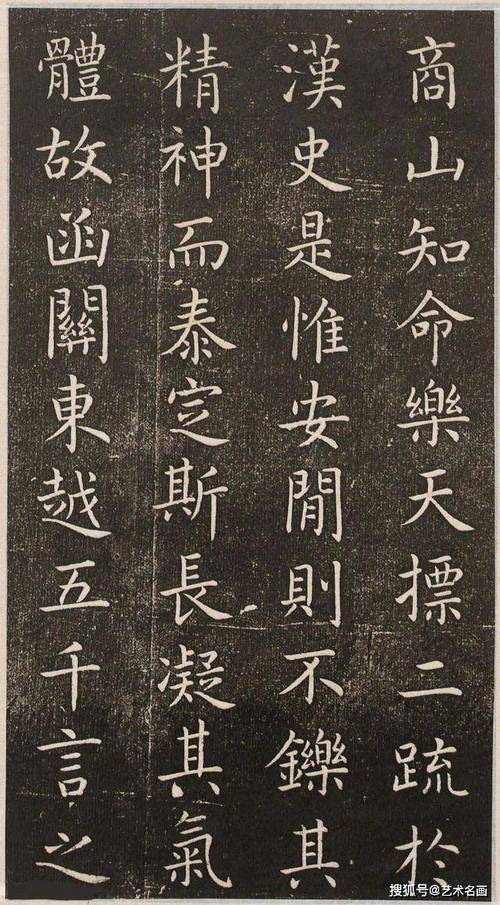 商山知命樂天摽二疏於
漢史是惟安閒則不鑠其
精神而泰定斯長凝其氣
體故函關東越五千言之
搜狐号@艺术名画